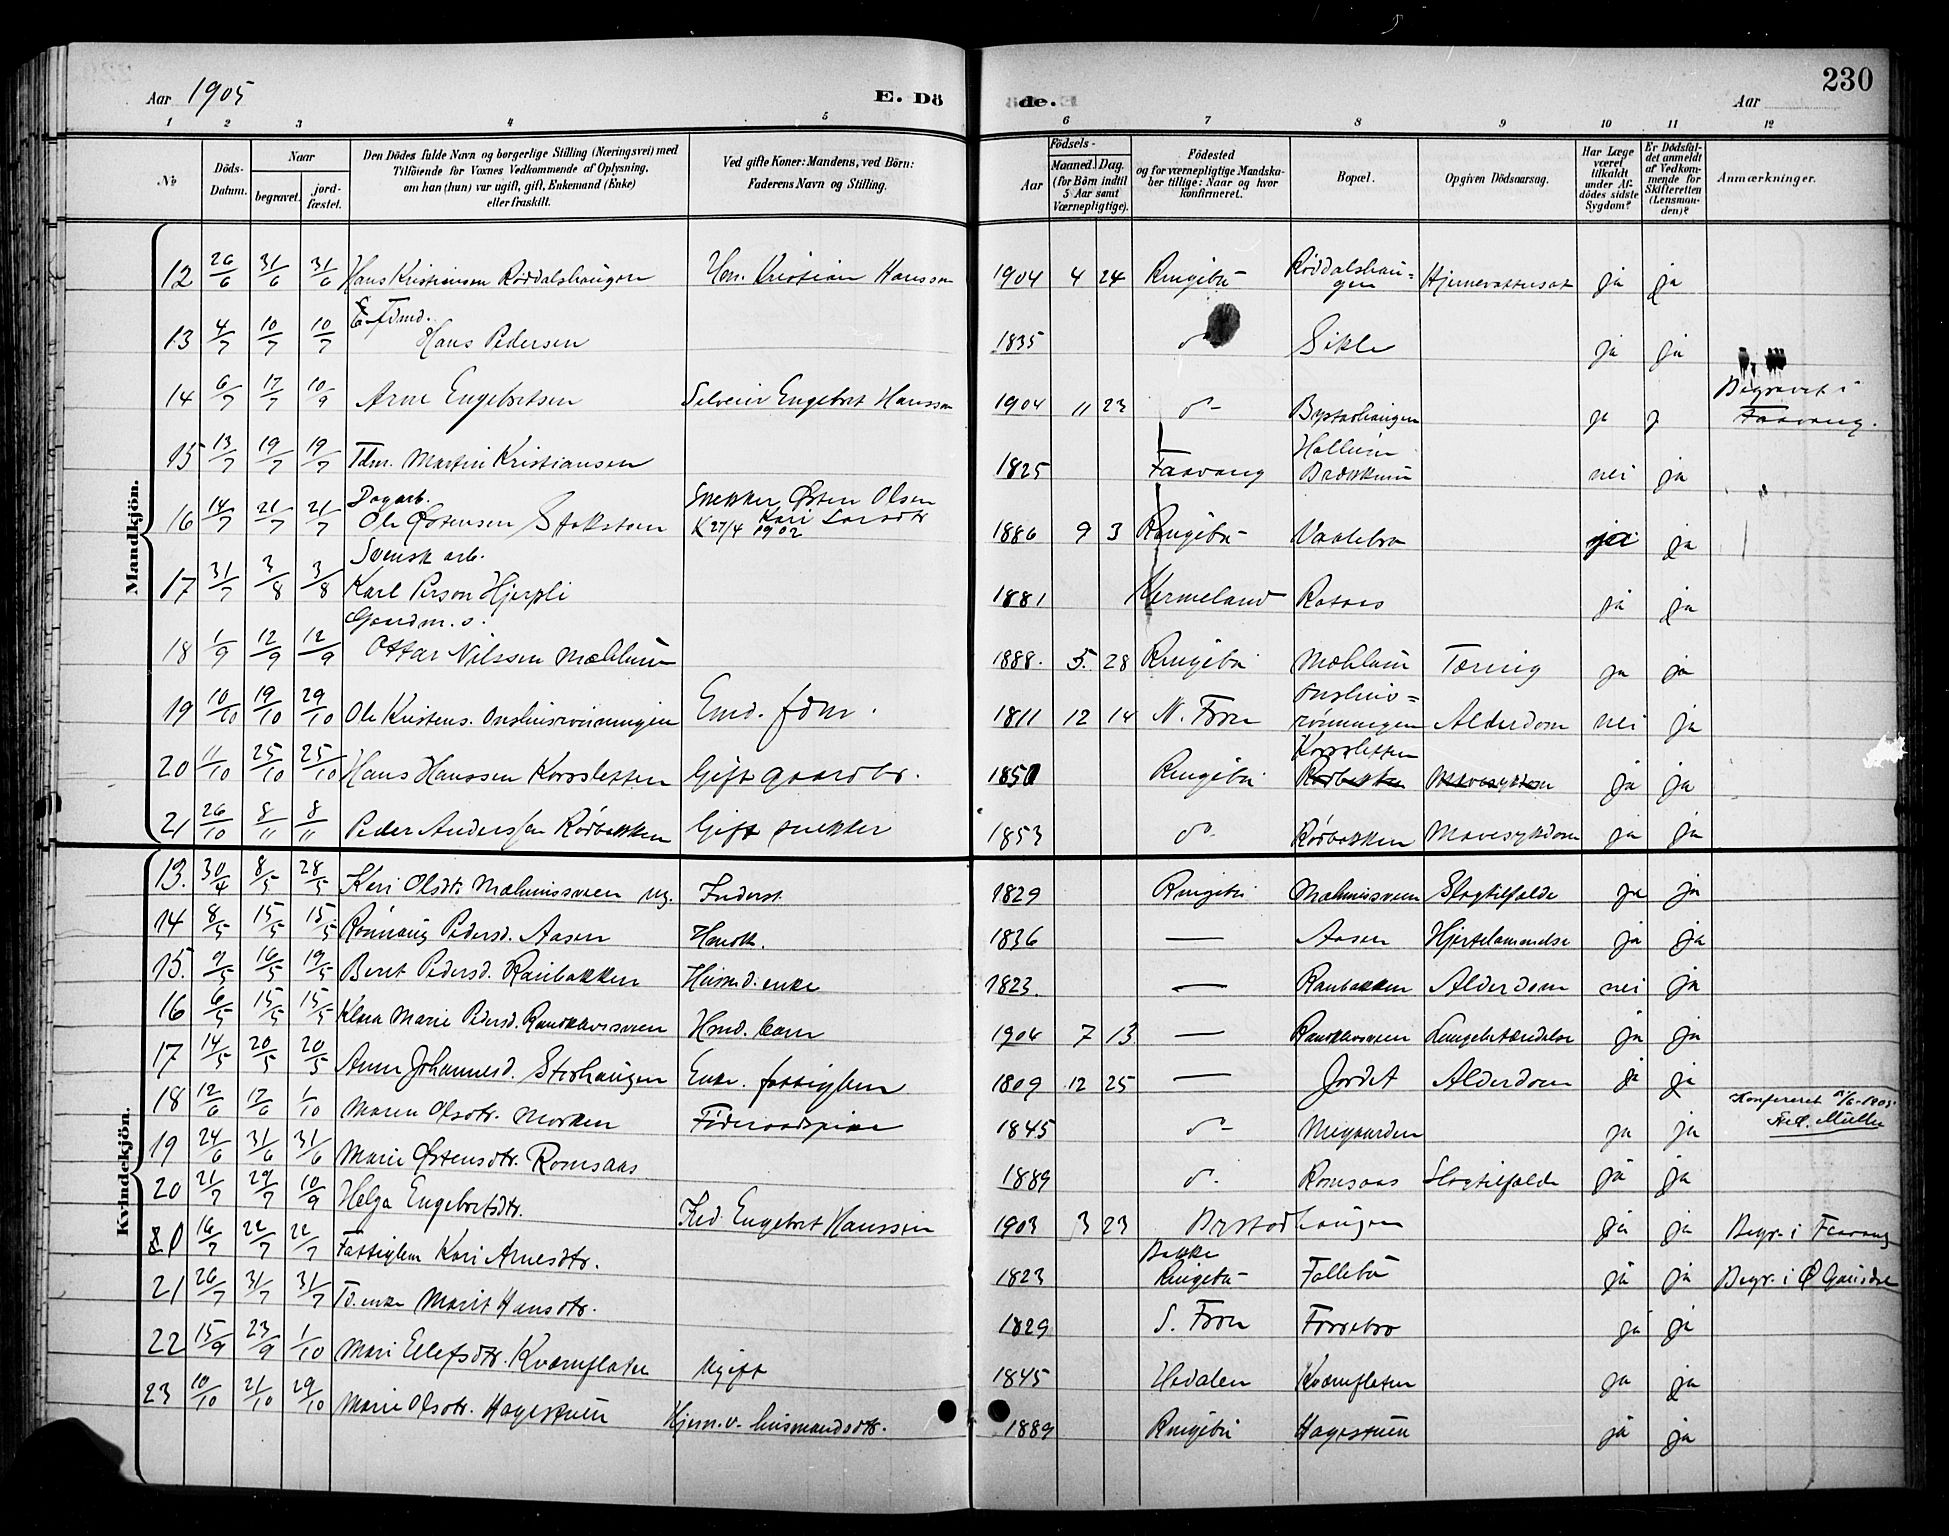 230
Aar 1905
E. Dö
de.
Aar
1 2 3 4 5 6 7 8 9 10 11 12
No
Döds-Datum.
Naar
begravet.
jord-fæstet.
Den Dödes fulde Navn og borgerlige Stilling (Næringsvei) med
Tilföiende for Voxnes Vedkommende af Oplysning,
om han (hun) var ugift, gift, Enkemand (Enke)
eller fraskilt.
Ved gifte Koner: Mandens, ved Börn:
Faderens Navn og Stilling.
Födsels-
Aar
Maaned. Dag.
(for Börn indtil
5 Aar samt
Værnepligtige).
Födested
og for værnepligtige Mandska-
ber tillige: Naar og hvor
konfirmeret.
Bopæl.
Opgiven Dödsaarsag.
Har Læge
været
tilkaldt
under Af-
dödes sidste
Sygdom?
Er Dödsfal-
det anmeldt
af Vedkom-
mende for
Skifteretten
(Lensman-
den)?
Anmærkninger.
Mandkjön.
12 26/6 31/6 31/6 Hans Kristiansen Röddalshaugen Hsm. Kristian Hanssen 1904 4 24 Ringebu Röddalshaugen ja ja
13 4/7 10/7 10/7 Hans Pedersen 1835 do Sikle ja ja
14 6/7 17/7 10/9 Arne Engebretsen Selveier Engebret Hanssen 1904 11 23 do Brystadhaugen ja j Begravet i Faavang.
15 13/7 19/7 19/7 Fdm. Martin Kristiansen 1825 Faavang nei ja
16 14/7 21/7 21/7 Dagarb. Ole Östensen Stokstem Snekker Østen Olsen K 27/4 1902 Kari Larsdtr 1886 9 3 Ringebu Vaalebro ja ja
17 31/7 3/8 3/8 Svensk arb. Karl Person Hjerpli 1881 Vermeland ja ja
18 1/9 12/9 12/9 Gaardm. s. Ottar Nilssen Mæhlum 1888. 5. 28 Ringebu Mæhlum Tæring ja ja
19 10/10 19/10 29/10 Ole Kristens. Onshusrønningen Emd. fdm. 1811 12 14 N. Fron Onshusrønningen Alderdom nei ja
20 11/10 25/10 25/10 Hans Hanssen Korssletten Gift gaardbr. 1850 Ringebu Korssletten Rødbakken Mavesygdom ja ja
21 26/10 8/11 8/11 Peder Anderssen Rödbakken Gift snekker 1853 do Rödbakken Mavesygdom ja ja
Kvindekjön.
13. 30/4 8/5 28/5 Kari Olsdtr Mælumsveen ug. Inderst. 1829 Ringebu Mælumsveen Slagtilfælde ja ja
14 8/5 15/5 15/5 Rønnaug Pedersd. Aasen 1836 — Aasen Hjertelammelse ja ja
15. 9/5 16/5 19/5 Berit Pedersd. Raubakken Husmd. enke 1823. — Raubakken Alderdom nei ja
16 6/5 15/5 15/5 Klara Marie Pedersd. Randklevsveen Hmd. barn 1904 7 13 — Randklevsveen Lungebetændelse ja ja
17 14/5 20/5 20/5 Anne Johannesd. Storhaugen Enke. fattiglem 1809 12 25 — Jordet Alderdom ja ja
18 12/6 17/6 1/10 Maren Olsdtr. Morken Föderaadspige 1845 do Megaarden ja ja Konfereret Fred. Müller
19 24/6 31/6 31/6 Marie Østensdtr. Romsaas 1889 do Romsaas Slagtilfælde ja ja
20 21/7 29/7 10/9 Helga Engebretsdtr. Engebret Hanssen 1903 3 23 Brystadhaugen ja ja Begr. i Faavang
21 16/7 22/7 22/7 Fattiglem Kari Arnesdtr. 1823 Bakke Ringebu Follebu ja ja Begr. i Ø Gausdal
21 26/7 31/7 31/7 Fd. enke Marit Hansdtr. 1829 S. Fron Forrebro ja ja
22 15/9 23/9 1/10 Mari Ellefsdtr. Kværnflaten Ugift 1845 Hedalen Kværnflaten ja ja
23 10/10 21/10 29/10 Marie Olsdtr. Hagestuen Hjem. v. husmandsdtr. 1889 Ringebu Hagestuen ja ja